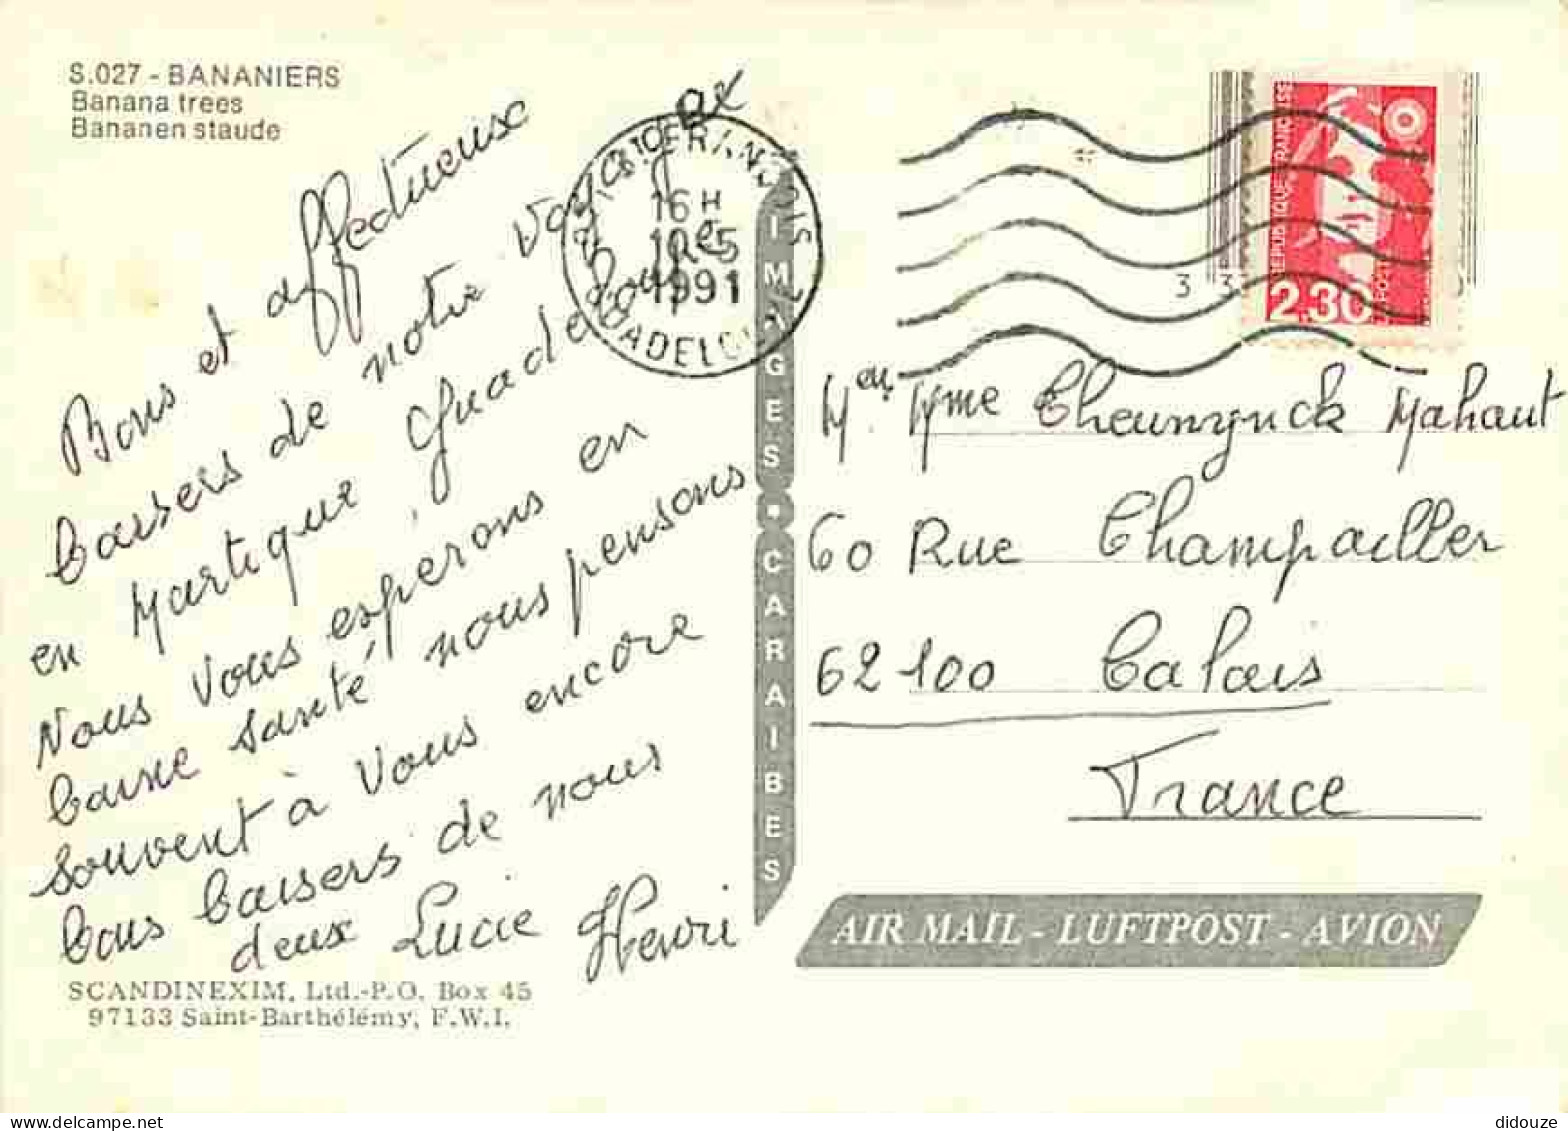 S.027 - BANANIERS
Banana trees
Bananen staude
Bons et affectueuse
baisers de notre voyage
en Martique, Guadeloupe
Nous vous esperons en
bonne santé, nous pensons
souvent à vous encore
bons baisers de nous
deux Lucie Henri
SCANDINEXIM, Ltd.-P.O. Box 45
97133 Saint-Barthélémy, F.W.I.
IMAGES • CARAIBES
16 H
10-5
1991
GUADELOUPE
REPUBLIQUE FRANÇAISE
2,30
3 3
Mr et Mme Mahaut
60 Rue Champailler
62100 Calais
France
AIR MAIL - LUFTPOST - AVION
didouze